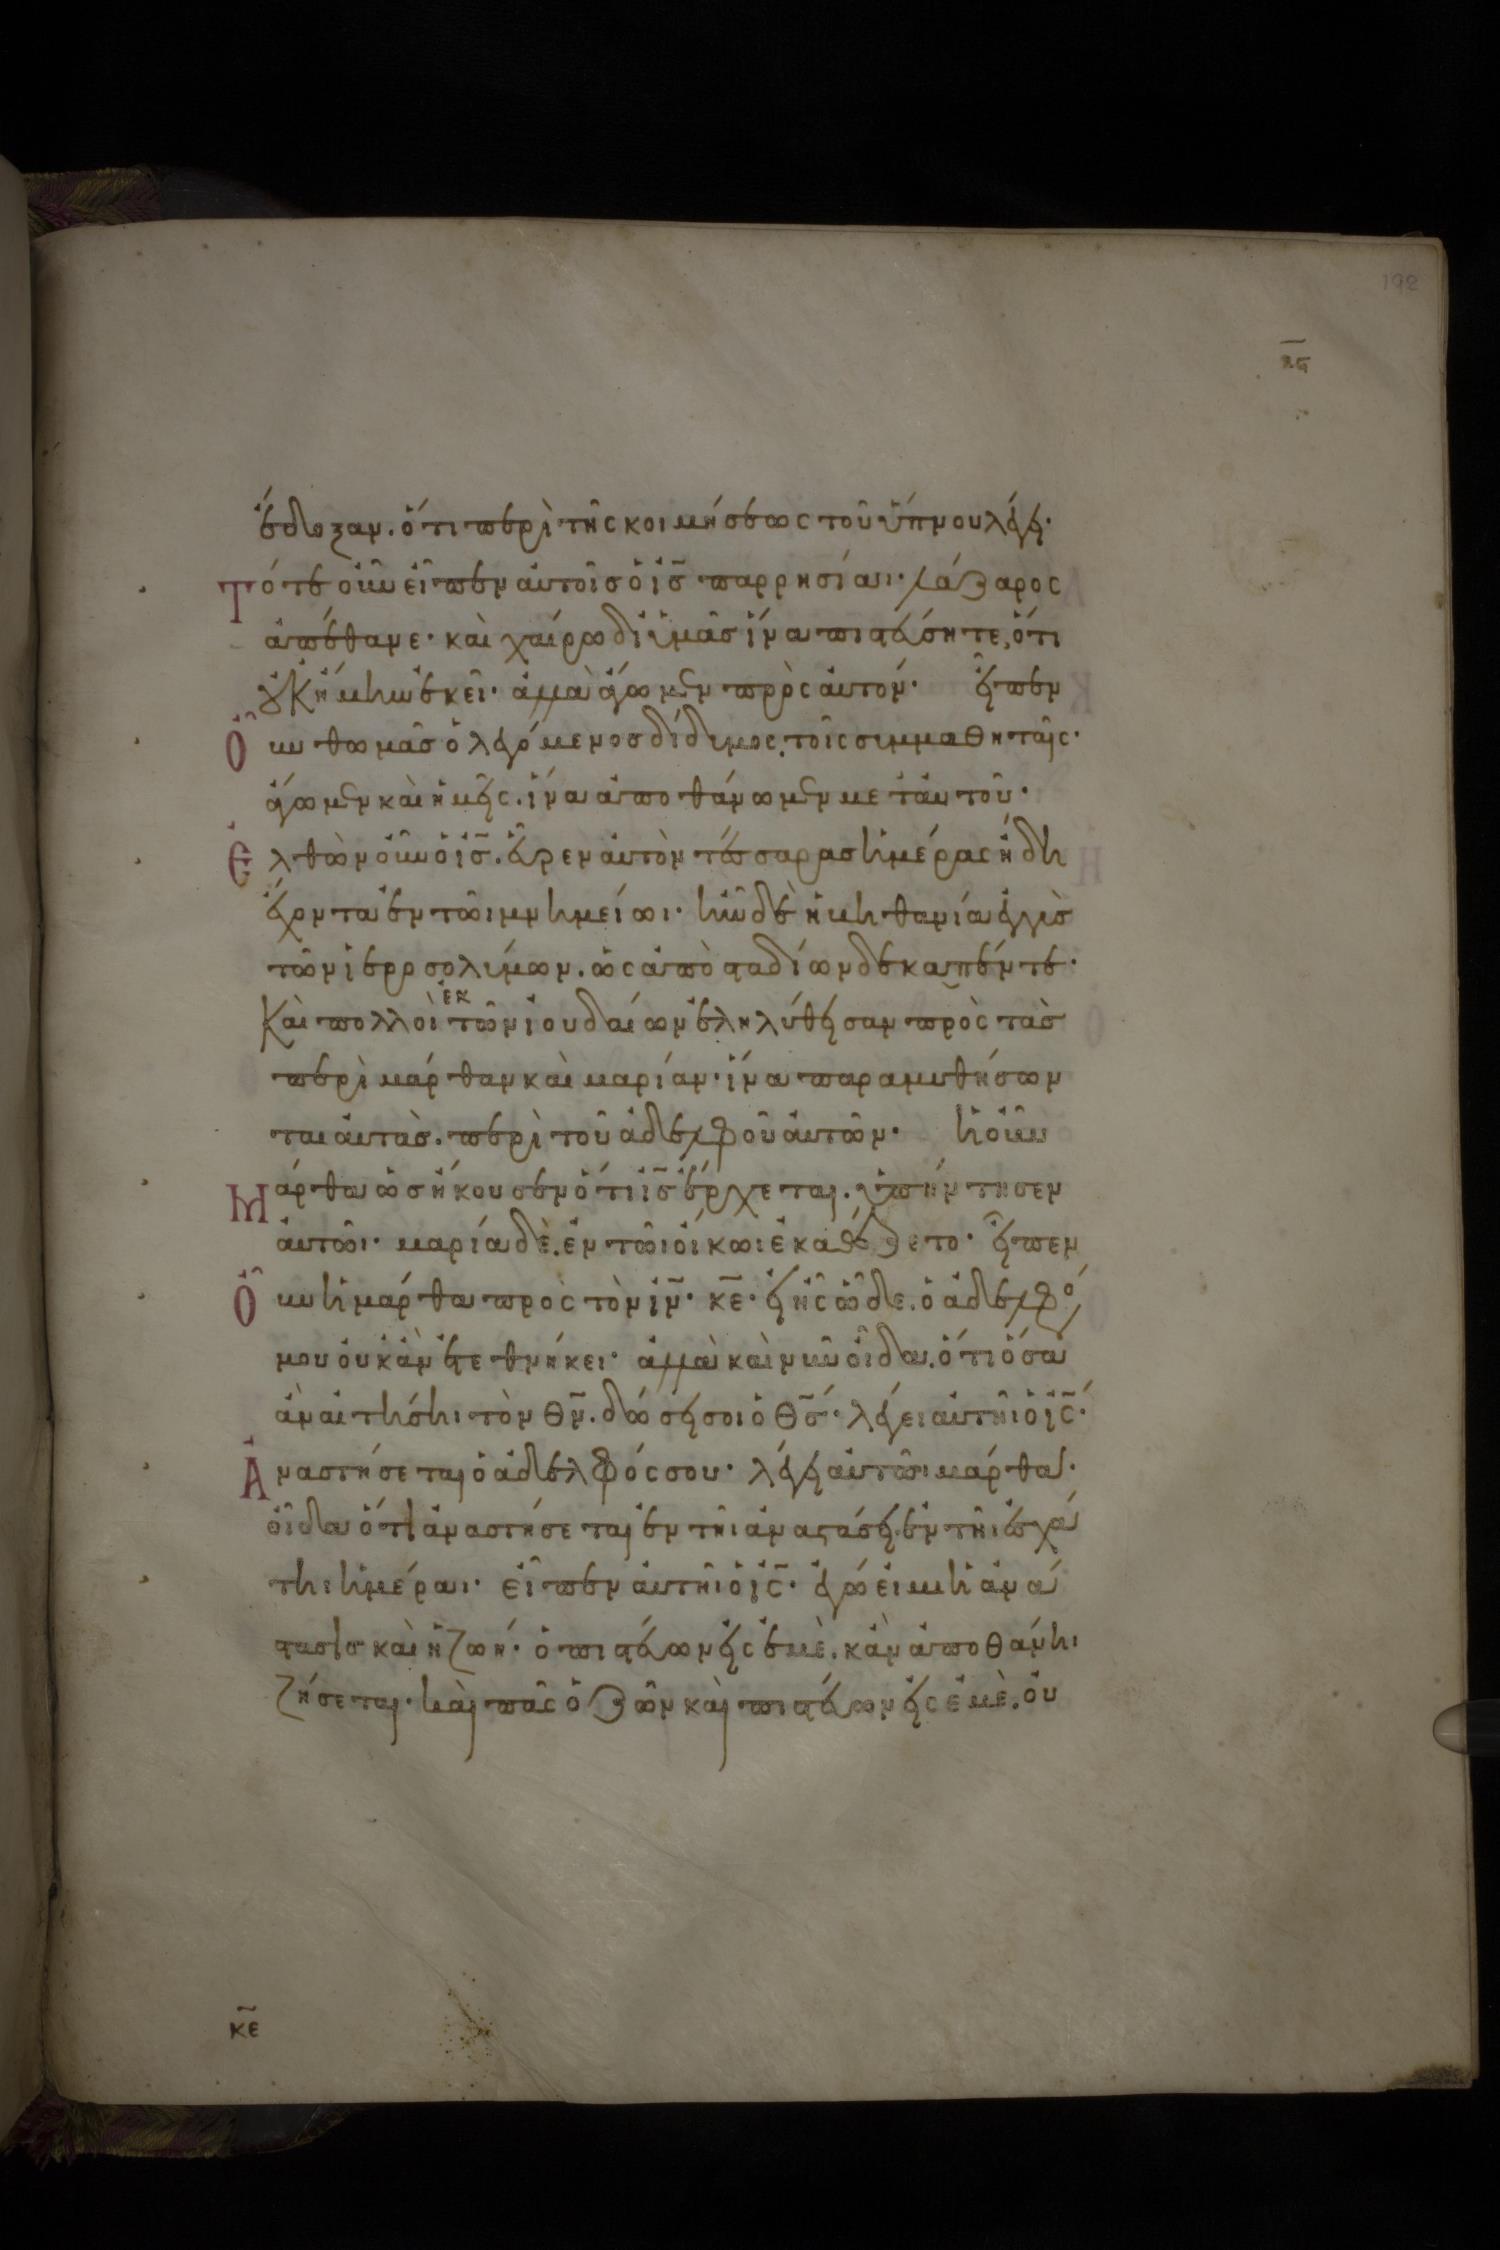 192
κϛ
ἔδοξαν. ὅτι περὶ τῆς κοιμήσεως τοῦ ὕπνου λέγει·
Τότε οὖν εἶπεν αὐτοῖς ὁ ἰς̅ παρρησίαι· λάζαρος
ἀπέθανε· καὶ χαίρω δι ὑμᾶς ἵνα πιστεύσητε, ὅτι
οὐκ ἤμην ἐκεῖ· ἀλλὰ ἄγωμεν πρὸς αὐτόν· εἶπεν
Οὖν θωμᾶς ὁ λεγόμενος δίδυμος, τοῖς συμμαθηταῖς·
ἄγωμεν καὶ ἡμεῖς. ἵνα ἀποθάνωμεν μετ αὐτοῦ·
Ἐλθὼν οὖν ὁ ἰς̅. εὗρεν αὐτὸν τέσσαρας ἡμέρας ἤδη
ἔχοντα ἐν τῶι μνημείωι· ἦν δὲ ἡ βηθανία ἐγγὺς
τῶν ἱεροσολύμων. ὡς ἀπὸ σταδίων δεκαπέντε·
Καὶ πολλοὶ ἐκ τῶν ἰουδαίων ἐληλύθεισαν πρὸς τὰς
περὶ μάρθαν καὶ μαρίαν· ἵνα παραμυθήσων
ται αὐτὰς. περὶ τοῦ ἀδελφοῦ αὐτῶν· ἡ οὖν
Μάρθα ὡς ἤκουσεν ὅτι ἰς̅ ἔρχεται. ὑπήντησεν
αὐτῶι· μαρία δὲ. ἐν τῶι οἴκωι ἐκαθέζετο· εἶπεν
Οὖν ἡ μάρθα πρὸς τὸν ἰν̅· κε̅· εἰ ἦς ὧδε. ὁ ἀδελφό
μου οὐκ ἂν ἐτεθνήκει· ἀλλὰ καὶ νῦν οἶδα. ὅτι ὅσα
ἂν αἰτήσηι τὸν θν̅. δώσει σοι ὁ θς̅· λέγει αὐτῆι ὁ ἰς̅·
Ἀναστήσεται ὁ ἀδελφός σου· λέγει αὐτῶι μάρθα·
οἶδα ὅτι ἀναστήσεται ἐν τῆι ἀναστάσει. ἐν τῆι ἐσχά
τηι ἡμέραι· εἶπεν αὐτῆι ὁ ἰς̅· ἐγώ εἰμι ἡ ἀνά
στασις καὶ ἡ ζωή· ὁ πιστεύων εἰς ἐμὲ. κἂν ἀποθάνηι
ζήσεται· καὶ πᾶς ὁ ζῶν καὶ πιστεύων εἰς ἐμὲ. οὐ
κε̅